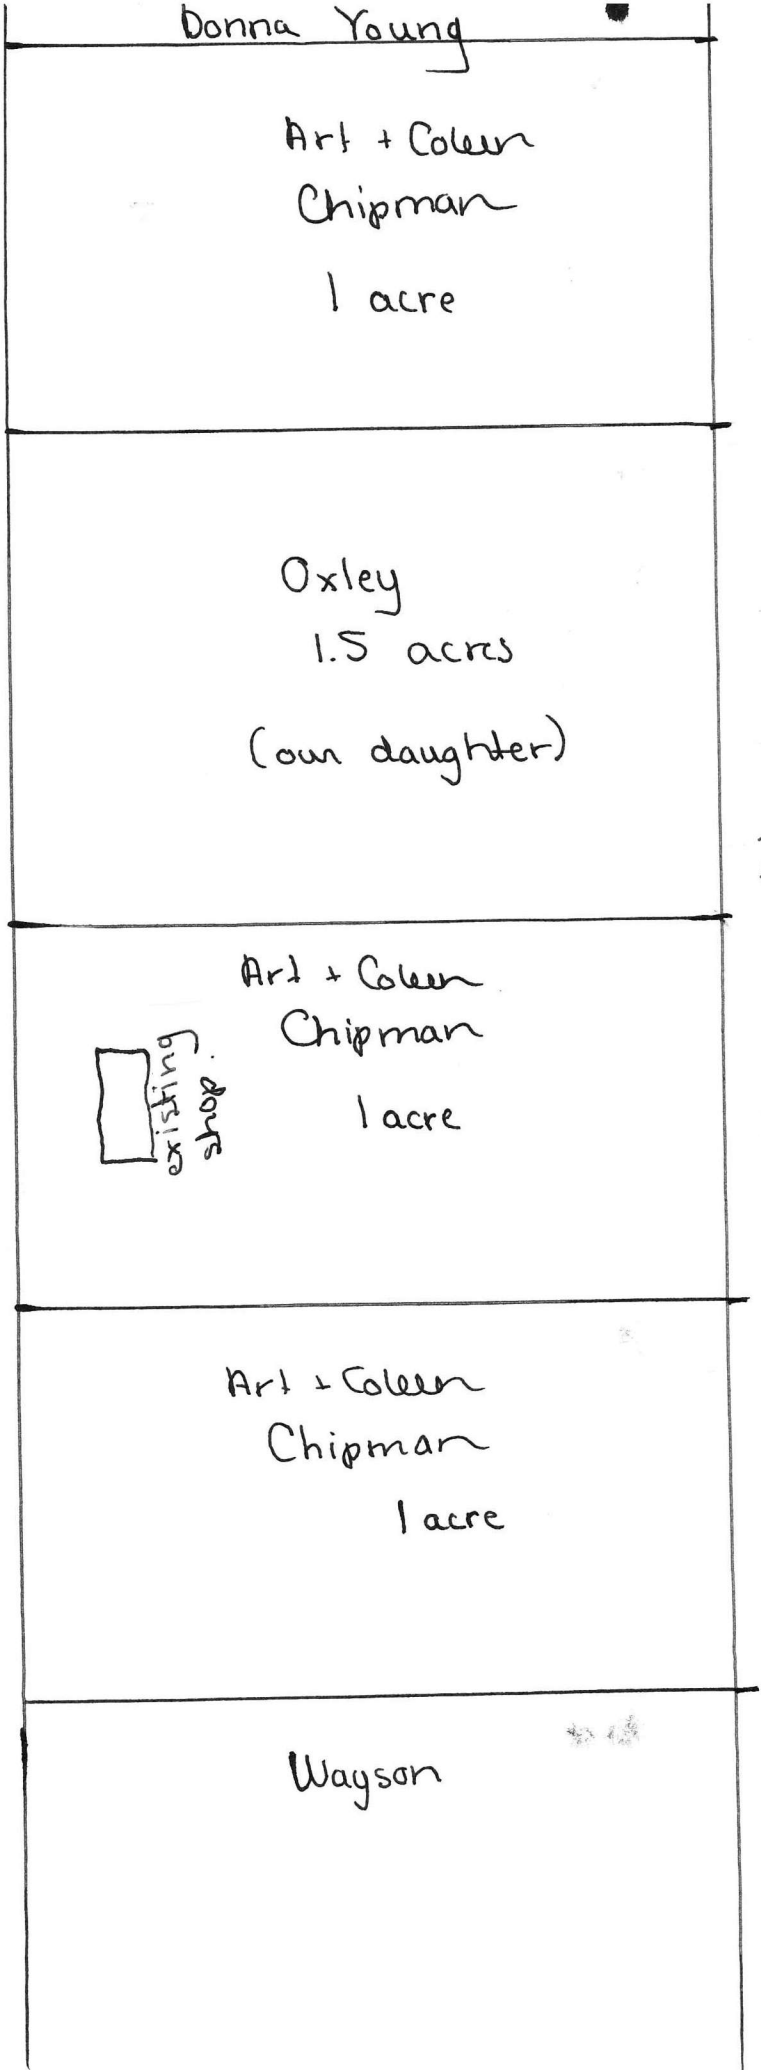 Donna Young
Art + Coleen
Chipman
1 acre
Oxley
1.5 acres
(our daughter)
Art + Coleen
Chipman
1 acre
existing
shop.
Art + Coleen
Chipman
1 acre
Wayson